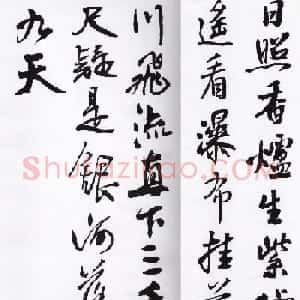 日照香爐生紫
遙看瀑布挂前
川飛流直下三千
尺疑是銀河落
九天